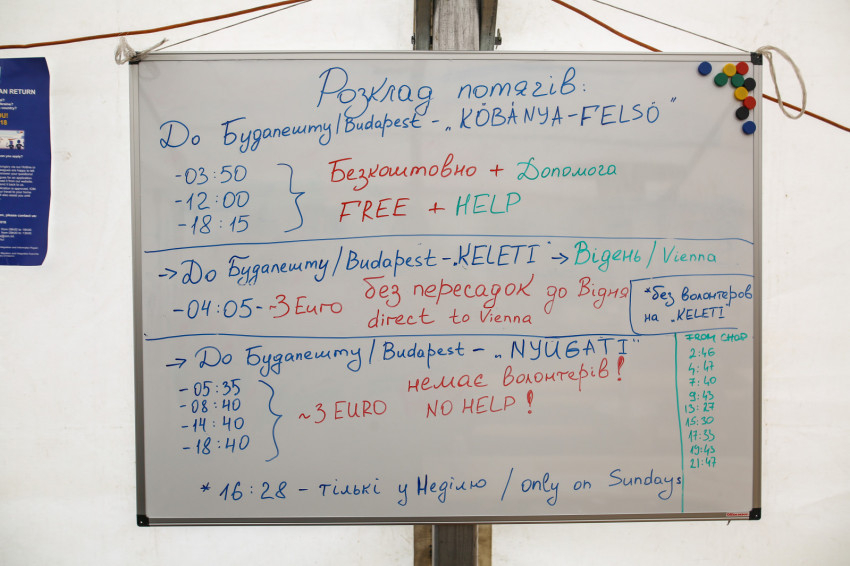 Розклад потягів:
До Будапешту/Budapest - „KŐBÁNYA-FELSŐ"
-03:50
-12:00
-18:15
Безкоштовно + Допомога
FREE + HELP
→ До Будапешту/Budapest - „KELETI" → Відень/Vienna
-04:05 - ~3 Euro
без пересадок до Відня
direct to Vienna
*без волонтеров
на „KELETI"
→ До Будапешту/Budapest - „NYUGATI"
-05:35
-08:40
-14:40
-18:40
~3 EURO
немає волонтерів!
NO HELP!
* 16:28 - тількі у Неділю / only on Sundays
FROM CHOP
2:46
4:47
7:40
9:43
13:27
15:30
17:33
19:43
21:47
AN RETURN